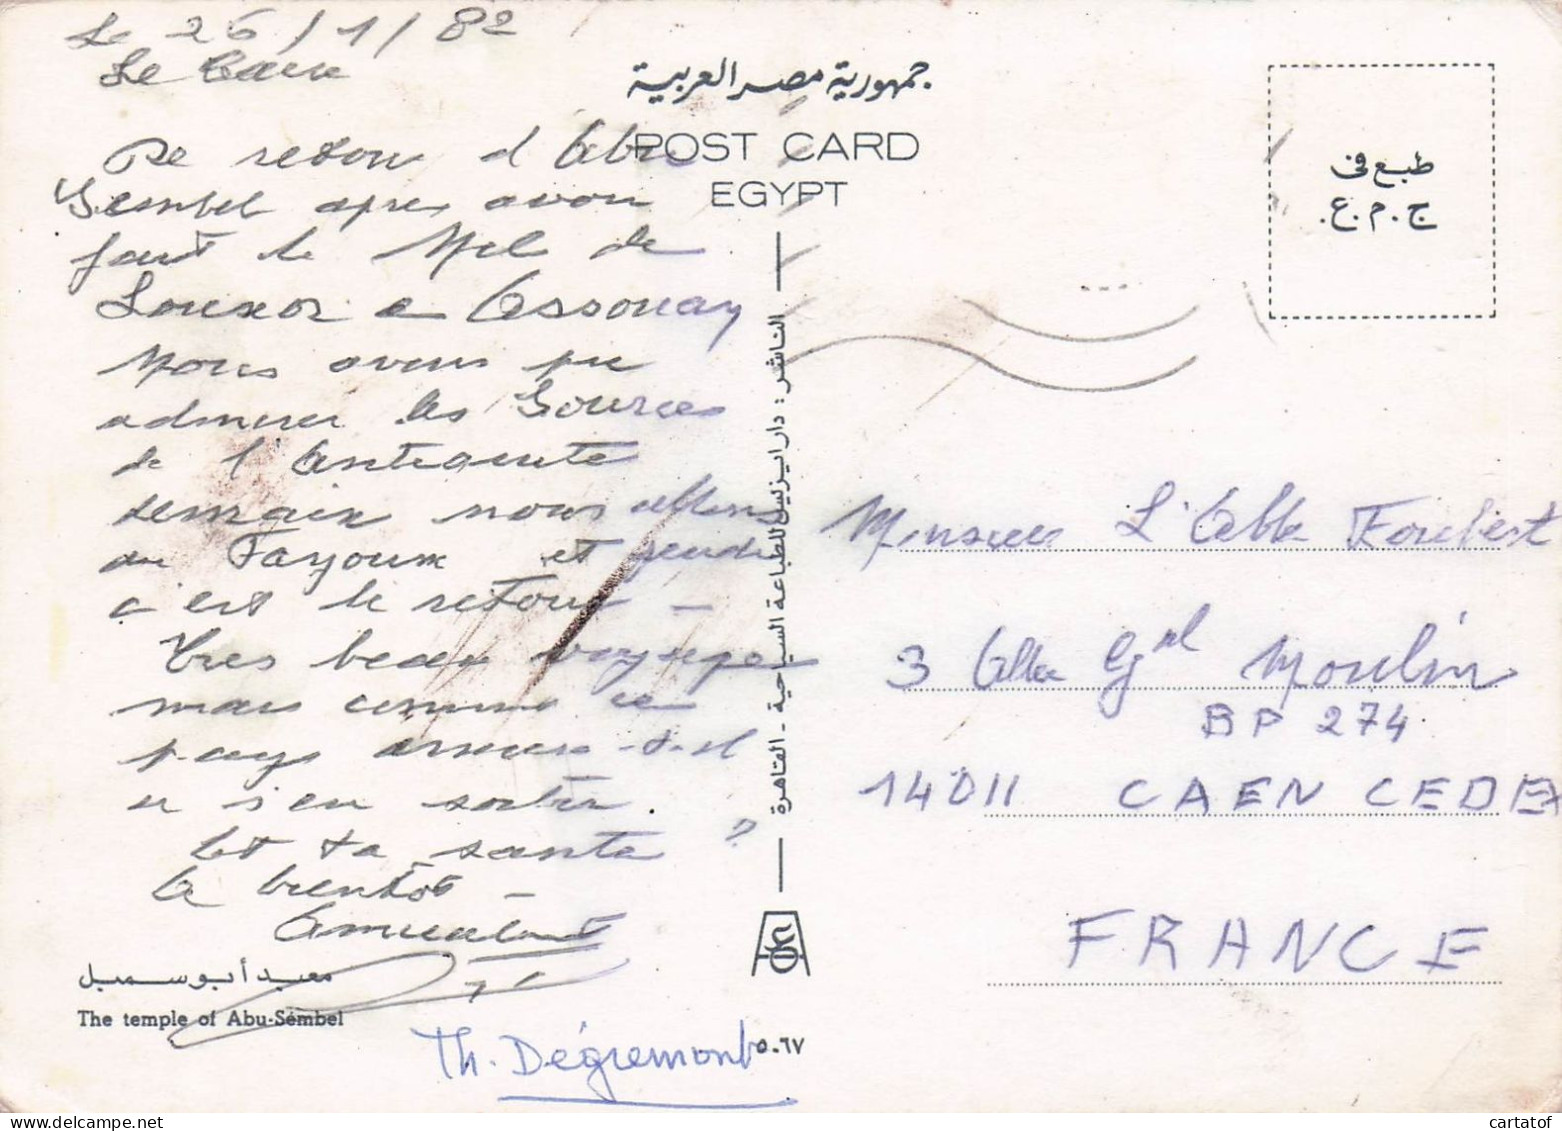 Le 26/1/82
Le Caire
جمهورية مصر العربية
POST CARD
EGYPT
طبع في
ج.م.ع.
De retour d'Abu
Sembel apres avoir
fait le Nil de
Louxor a Assouan
Nous avons pu
admirer les Sources
de l'Antiquité
demain nous allons
au Fayoum et jeudi
c'est le retour -
Tres beau voyage
mais comme ce
pays arrivera-t-il
a s'en sortir.
Et ta santé ?
A bientôt -
Amicalement
الناشر : دار ايزيس للطباعة السياحية - القاهرة
Monsieur L'Abbe Foubert
3 Allee Gnal Moulin
BP 274
14011 CAEN CEDEX
FRANCE
معبد أبو سمبل
The temple of Abu-Sembel
Th. Dégremont
٥٠٦٧
cartatof
https://www.delcampe.net